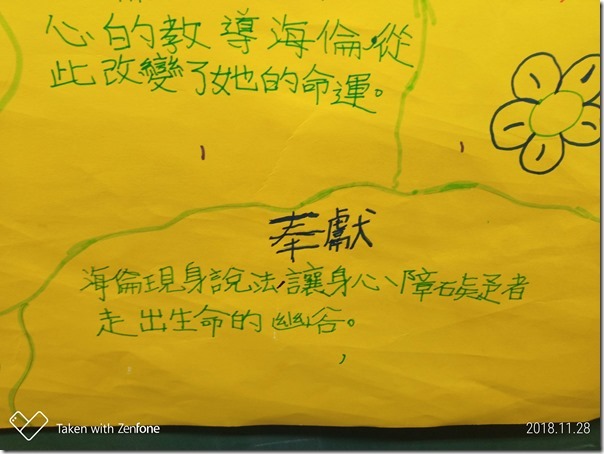 心的教導海倫,從
此改變了她的命運。
奉獻
海倫現身說法,讓身心障礙者
走出生命的幽谷。
Taken with Zenfone
2018.11.28